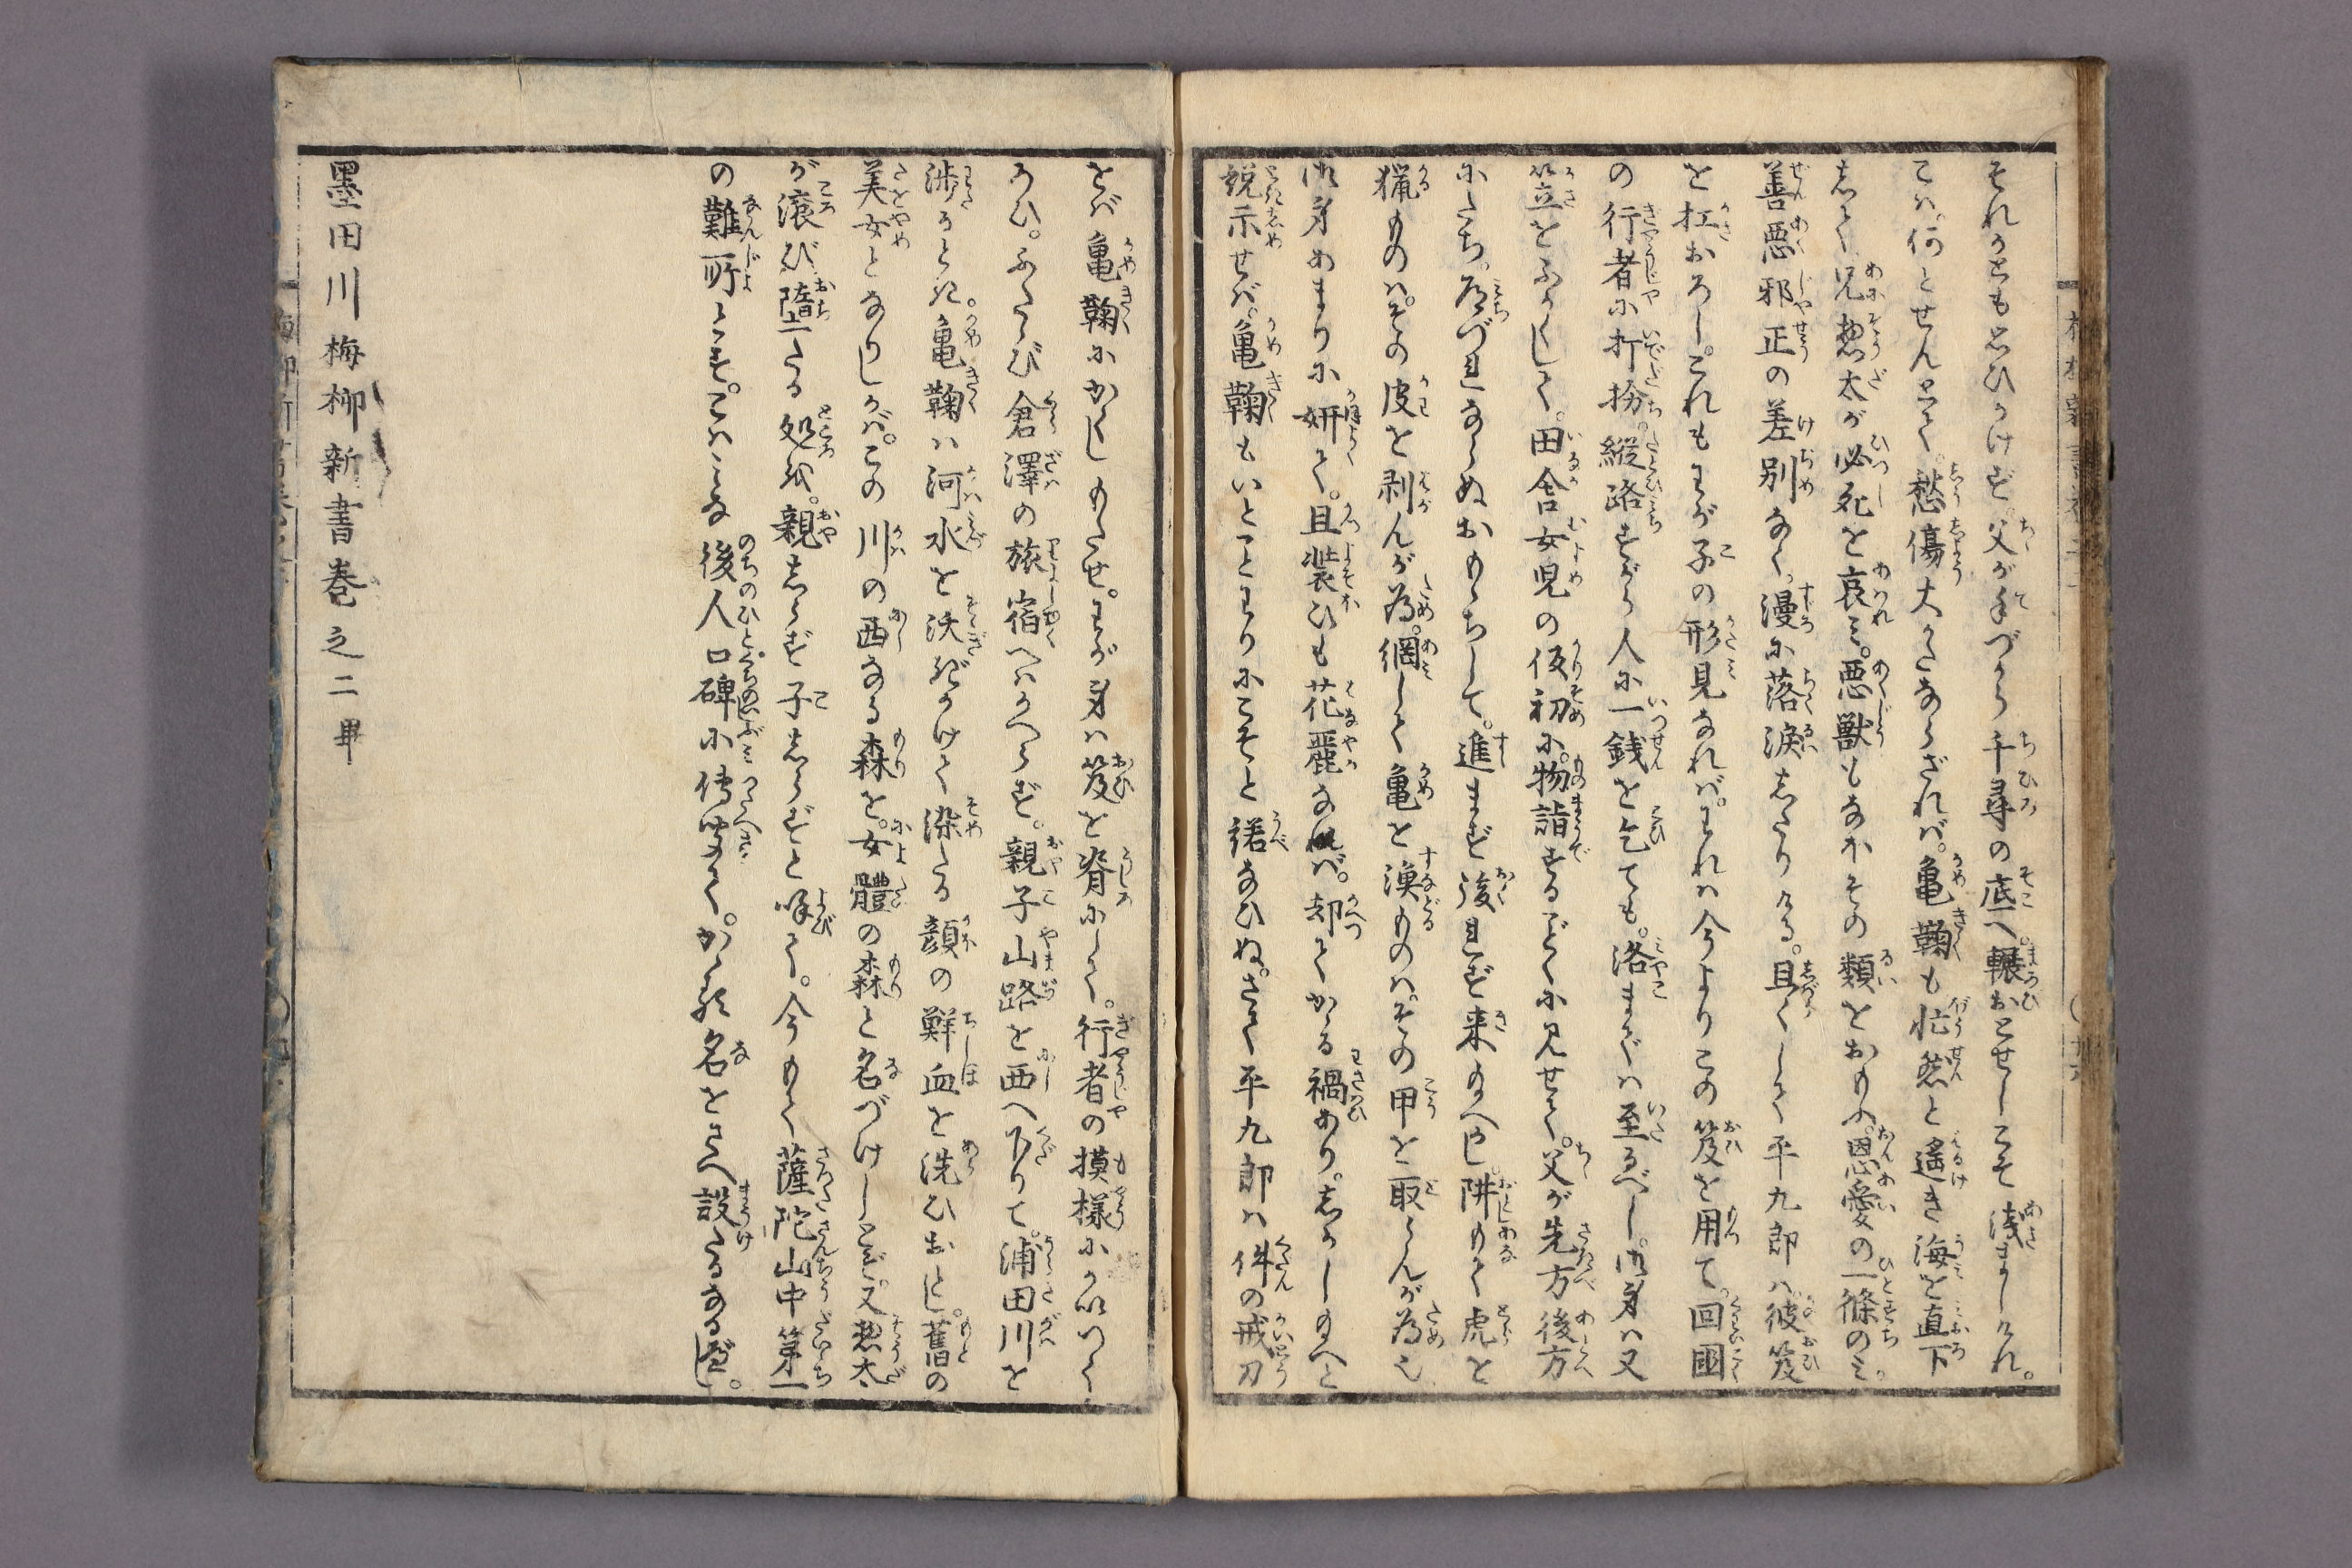 それかとも思ひかけず。父が手づから千尋の底へ。輾おとせしこそ浅ましけれ。
こは何とせんとて。愁傷大かたならざれば。亀鞠も忙然と遙き海を直下
して。兄惣太が必死を哀み。悪獣もなほその類をおもふ。恩愛の一條のみ。
善悪邪正の差別なく。漫に落涙したりける。且くして平九郎は。彼笈
を扛おろし。これもわが子の形見なれば。われは今よりこの笈を用て。回國
の行者に打扮。縦路すがら人に一銭を乞ても。洛までは至るべし。御身は又
笠をふかくして。田舎女児の仮初に。物詣するごとくに見せて。父が先方後方
にたち。道づれならぬおももちして。進まず後れず来給へかし。阱もて虎を
猟ものは。その皮を剥んが為。網して亀を漁ものは。その甲を取らんが為也
御身あまりに妍て。且装ひも花麗なれば。却てかかる禍あり。しかし給へと
説示せば。亀鞠もいとことわりにこそと諾なひぬ。さて平九郎は件の戒刀
をば亀鞠にかくしもたせ。わが身は笈を脊にして。行者の摸様にかいつく
ろひ。ふたたび倉澤の旅宿へはかへらず。親子山路を西へ下りて。浦田川を
渉るとき。亀鞠は河水を沃ぎかけて染たる顔の鮮血を洗ひおとし。舊の
美女となりしかば。この川の西なる森を。女體の森と名づけしとぞ。又惣太
が滚び墮たる処を。親しらず子しらずと喚て。今もて薩陀山中第一
の難所とす。こはみな後人口碑に傳聞て。かかる名をさへ設たるなるべし。
墨田川梅柳新書巻之二畢